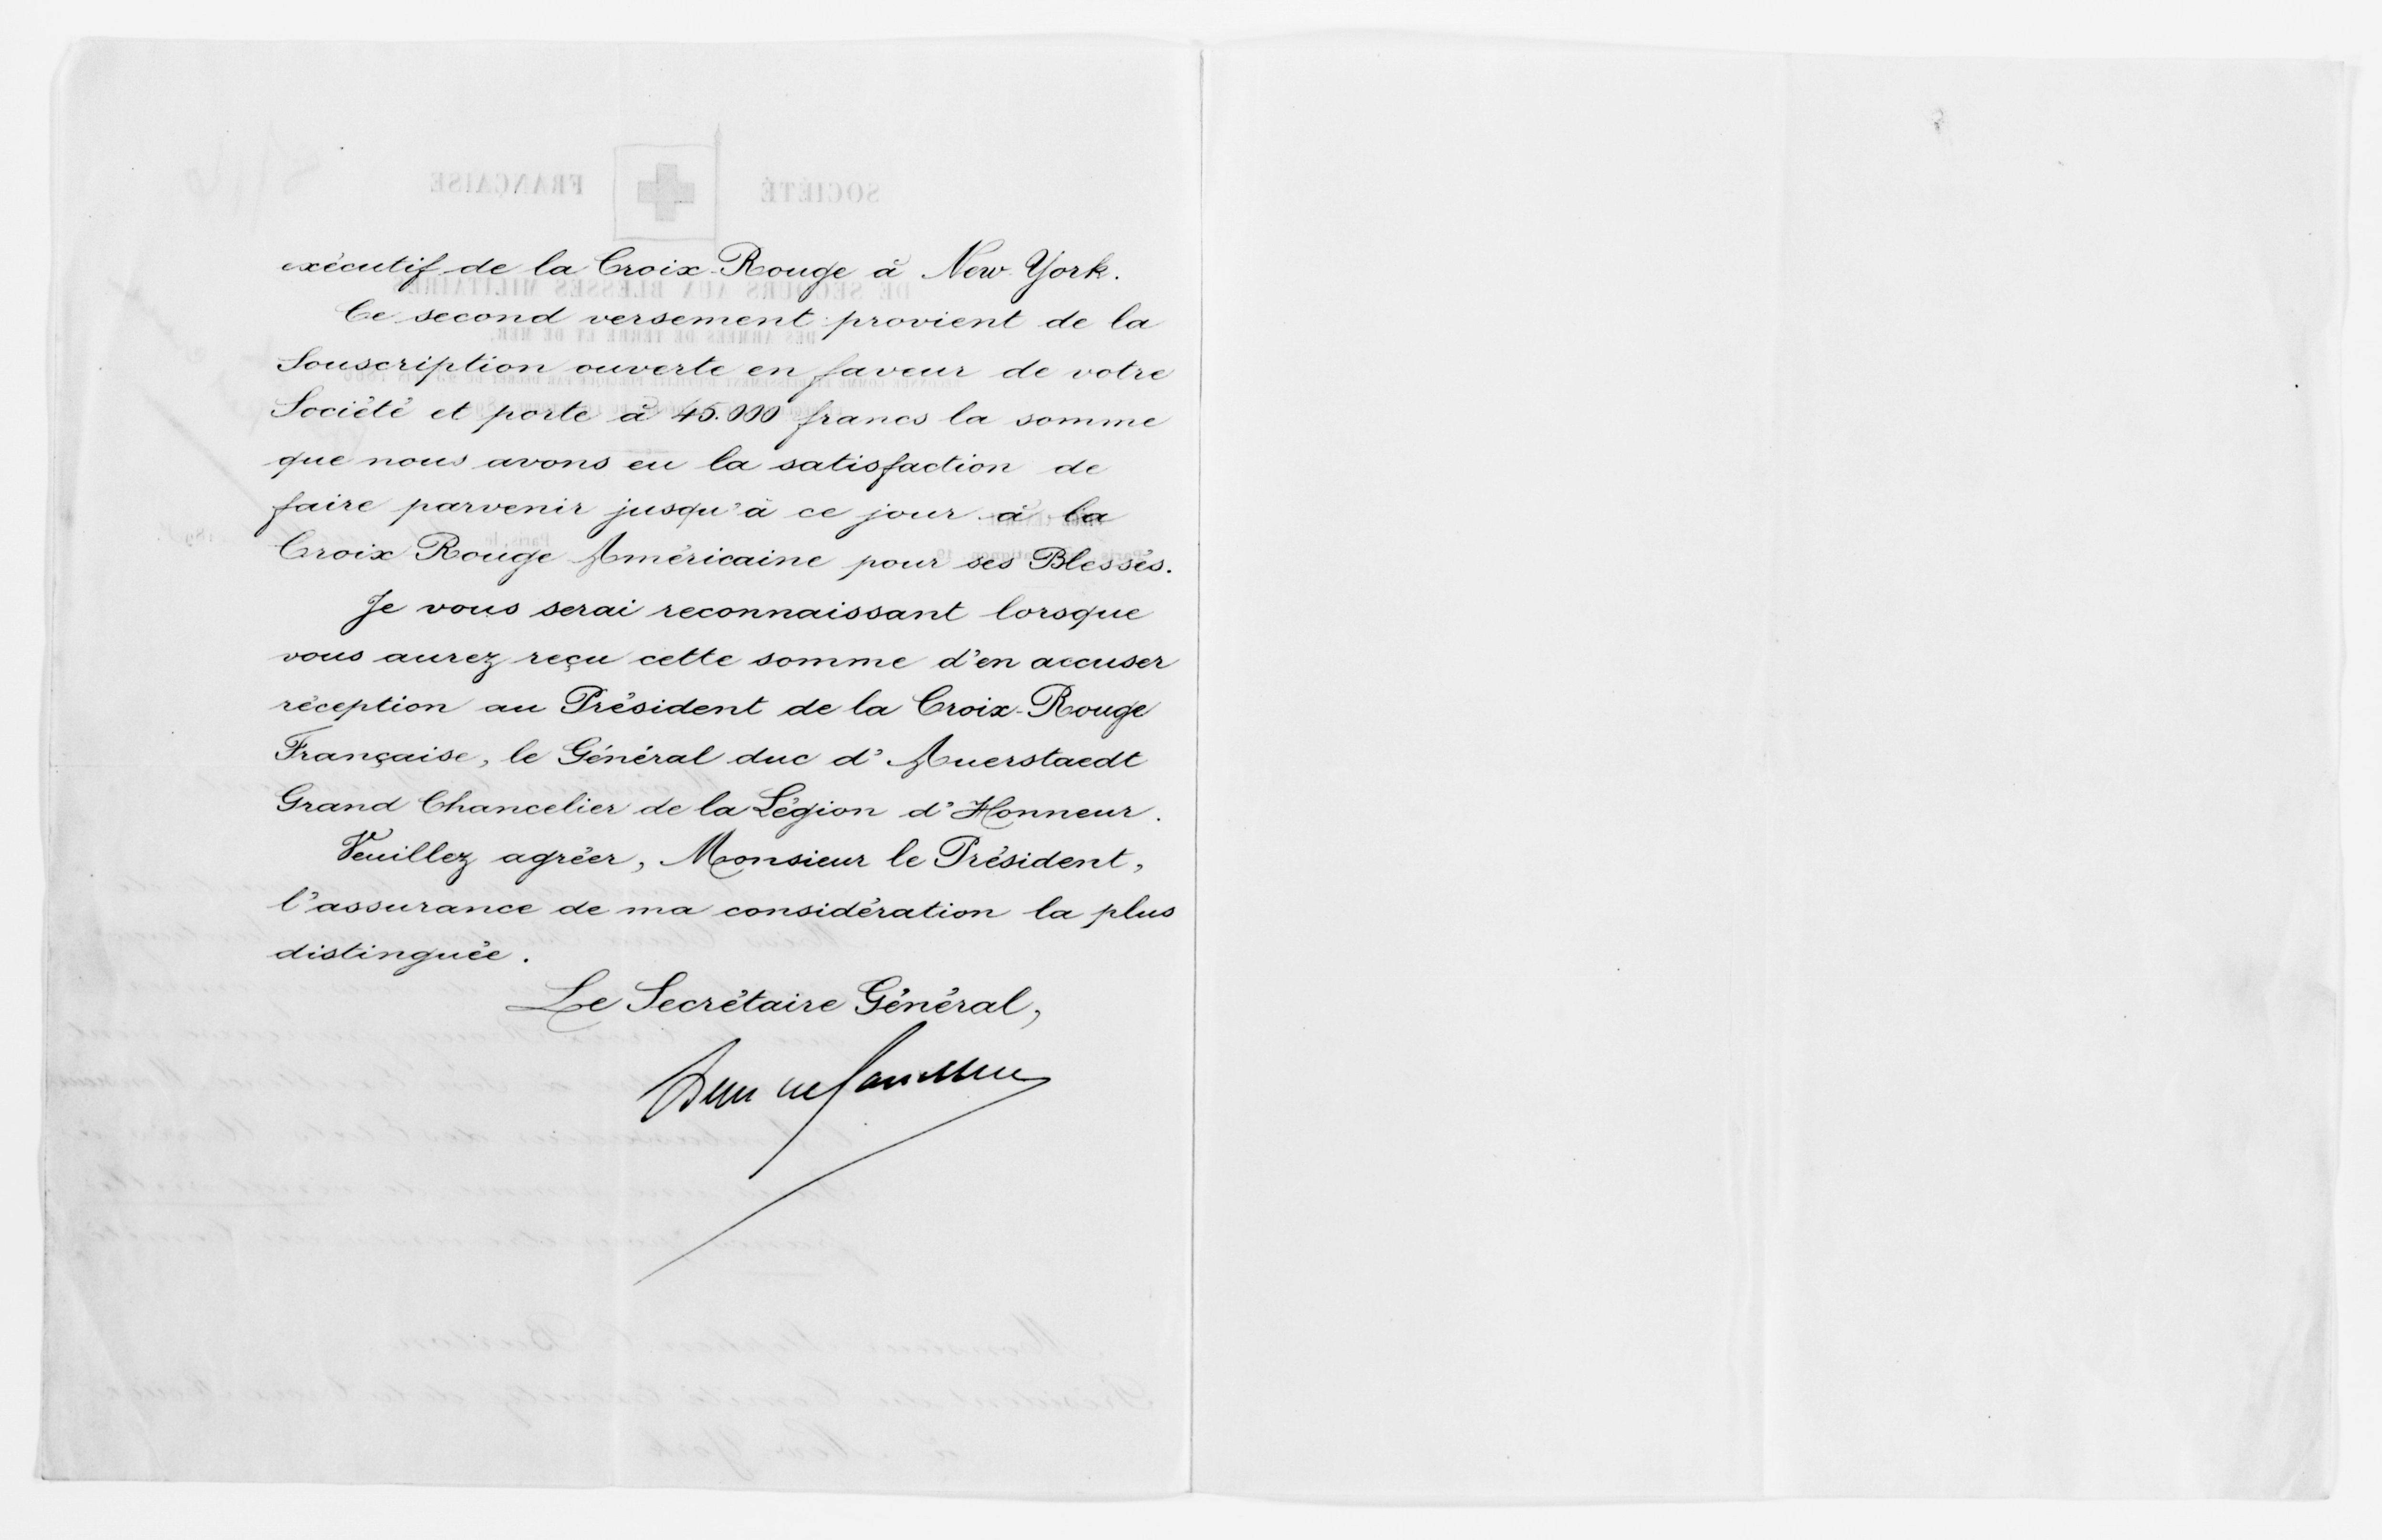 exécutif de la Croix-Rouge à New-York.
Ce second versement provient de la
Souscription ouverte en faveur de votre
Société et porte à 45.000 francs la somme
que nous avons eu la satisfaction de
faire parvenir jusqu'à ce jour à la
Croix Rouge Américaine pour ses Blessés.
Je vous serai reconnaissant lorsque
vous aurez reçu cette somme d'en accuser
réception au Président de la Croix-Rouge
Française, le Général duc d'Auerstaedt
Grand Chancelier de la Légion d'Honneur.
Veuillez agréer, Monsieur le Président,
l'assurance de ma considération la plus
distinguée.
Le Secrétaire Général,